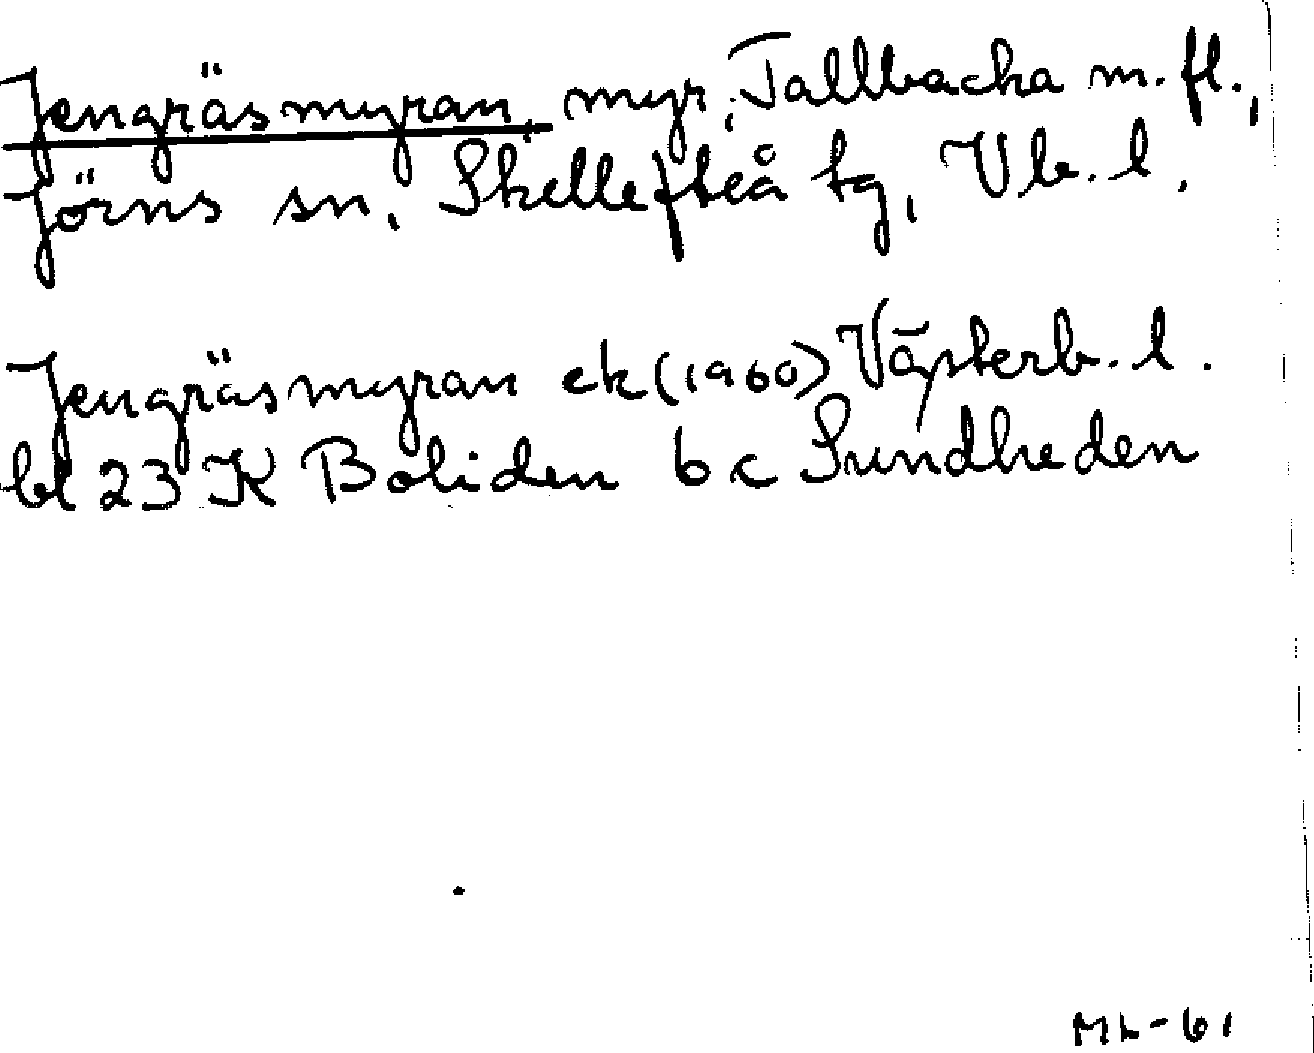 Jengräsmyran, myr, Tallbacka m. fl.,
Jörns sn, Skellefteå tg, Vb. l.
Jengräsmyran ek (1960) Västerb. l.
bl 23 K Boliden 6 c Sundheden
ML-61